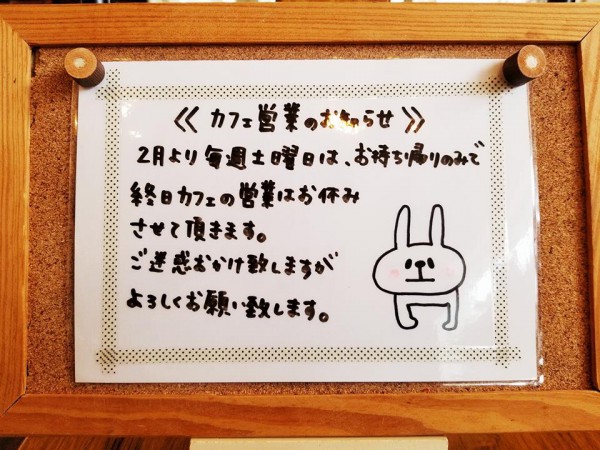 《 カフェ営業のお知らせ 》
2月より毎週土曜日は、お持ち帰りのみで
終日カフェの営業はお休み
させて頂きます。
ご迷惑おかけ致しますが
よろしくお願い致します。